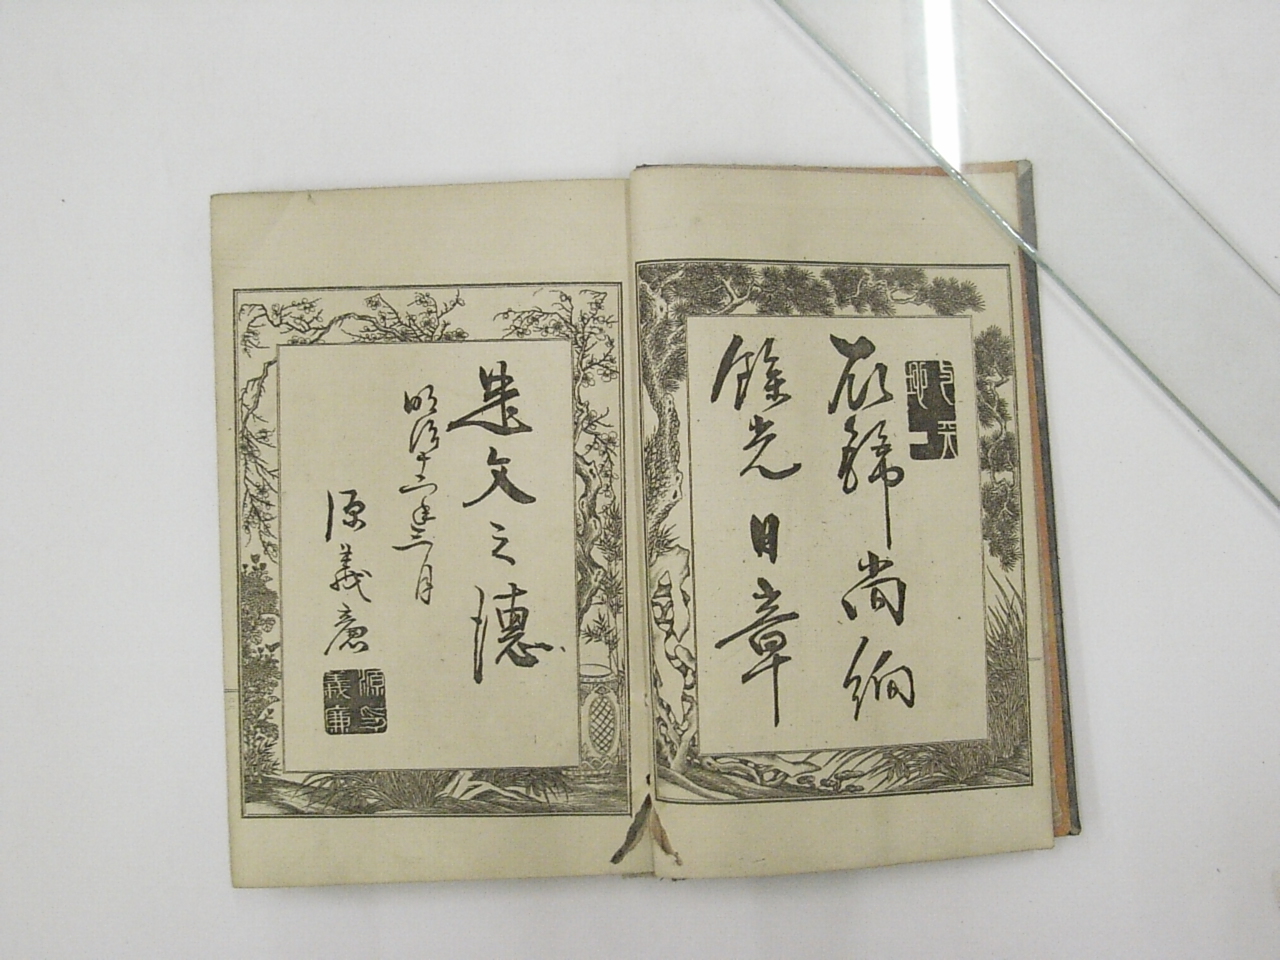 衣錦尚絅
餘光日章
是文之德
明治十二年三月
源義廉
源印義廉